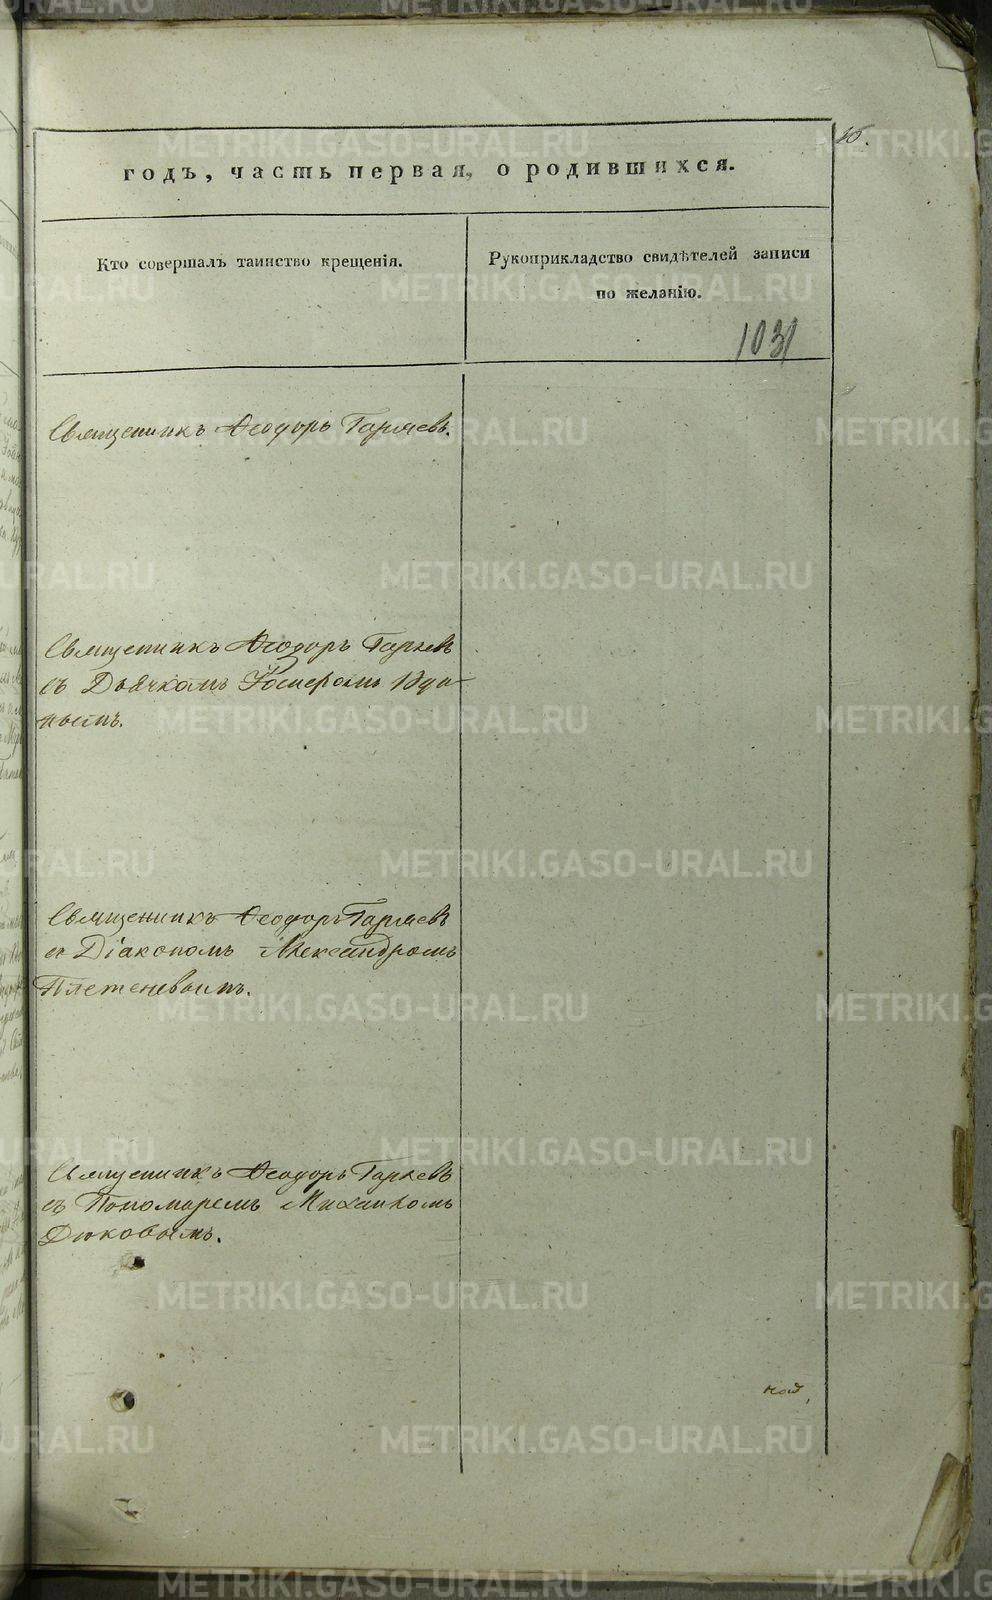 16.
годъ, часть первая, о родившихся.
Кто совершалъ таинство крещенія.
Рукоприкладство свидѣтелей записи
по желанію.
1031
Священникъ Ѳеодоръ Гаряевъ.
Священникъ Ѳеодоръ Гаряевъ
съ Дьячкомъ
нымъ.
Священникъ Ѳеодоръ Гаряевъ
съ Діакономъ Александромъ
Плетеневымъ.
Священникъ Ѳеодоръ Гаряевъ
съ Пономаремъ Михаиломъ
Дюковымъ.
METRIKI.GASO-URAL.RU